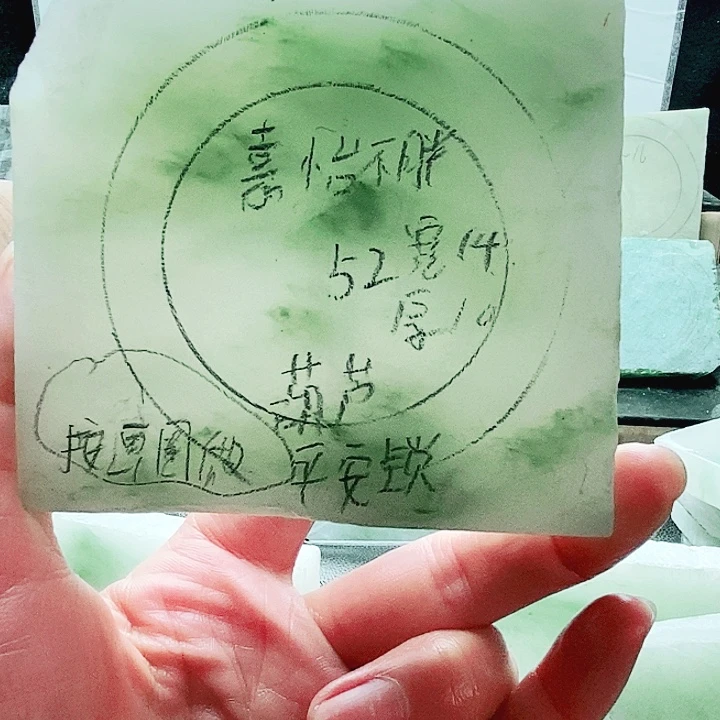 喜 怡不胖
52 宽14
厚10
葫芦
按原图做 平安锁